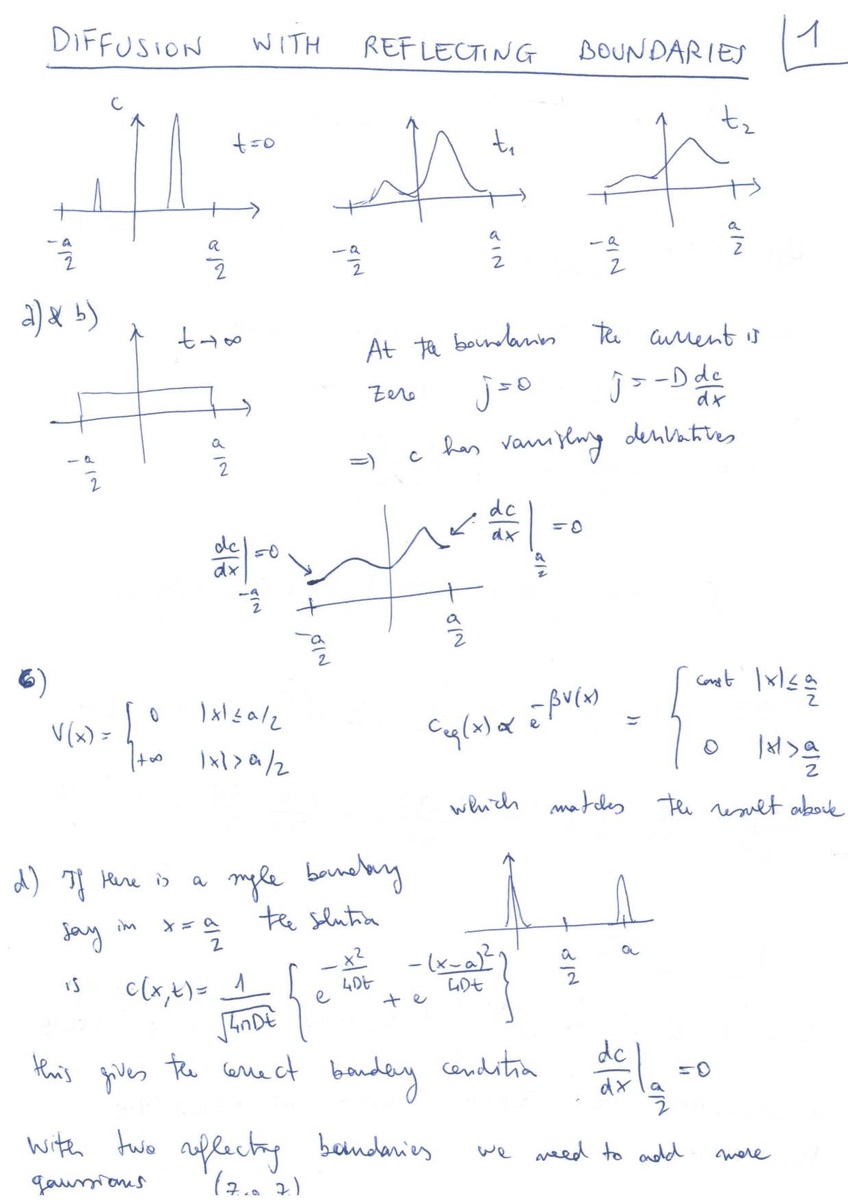 DIFFUSION WITH REFLECTING BOUNDARIES 1
c t=0 t₁ t₂
-a/2 a/2 -a/2 a/2 -a/2 a/2
a) & b)
t→∞
-a/2 a/2
At the boundaries the current is
zero j=0 j = -D dc/dx
=> c has vanishing derivatives
dc/dx|-a/2 =0 dc/dx|a/2 =0
-a/2 a/2
c)
V(x) = { 0 |x| ≤ a/2
+∞ |x| > a/2
Ceq(x) ∝ e^-βV(x) = { const |x| ≤ a/2
0 |x| > a/2
which matches the result above
d) If there is a single boundary
say in x = a/2 the solution
a/2 a
is c(x,t) = 1/√4πDt { e^-x²/4Dt + e^-(x-a)²/4Dt }
this gives the correct boundary condition dc/dx|a/2 =0
With two reflecting boundaries we need to add more
gaussians